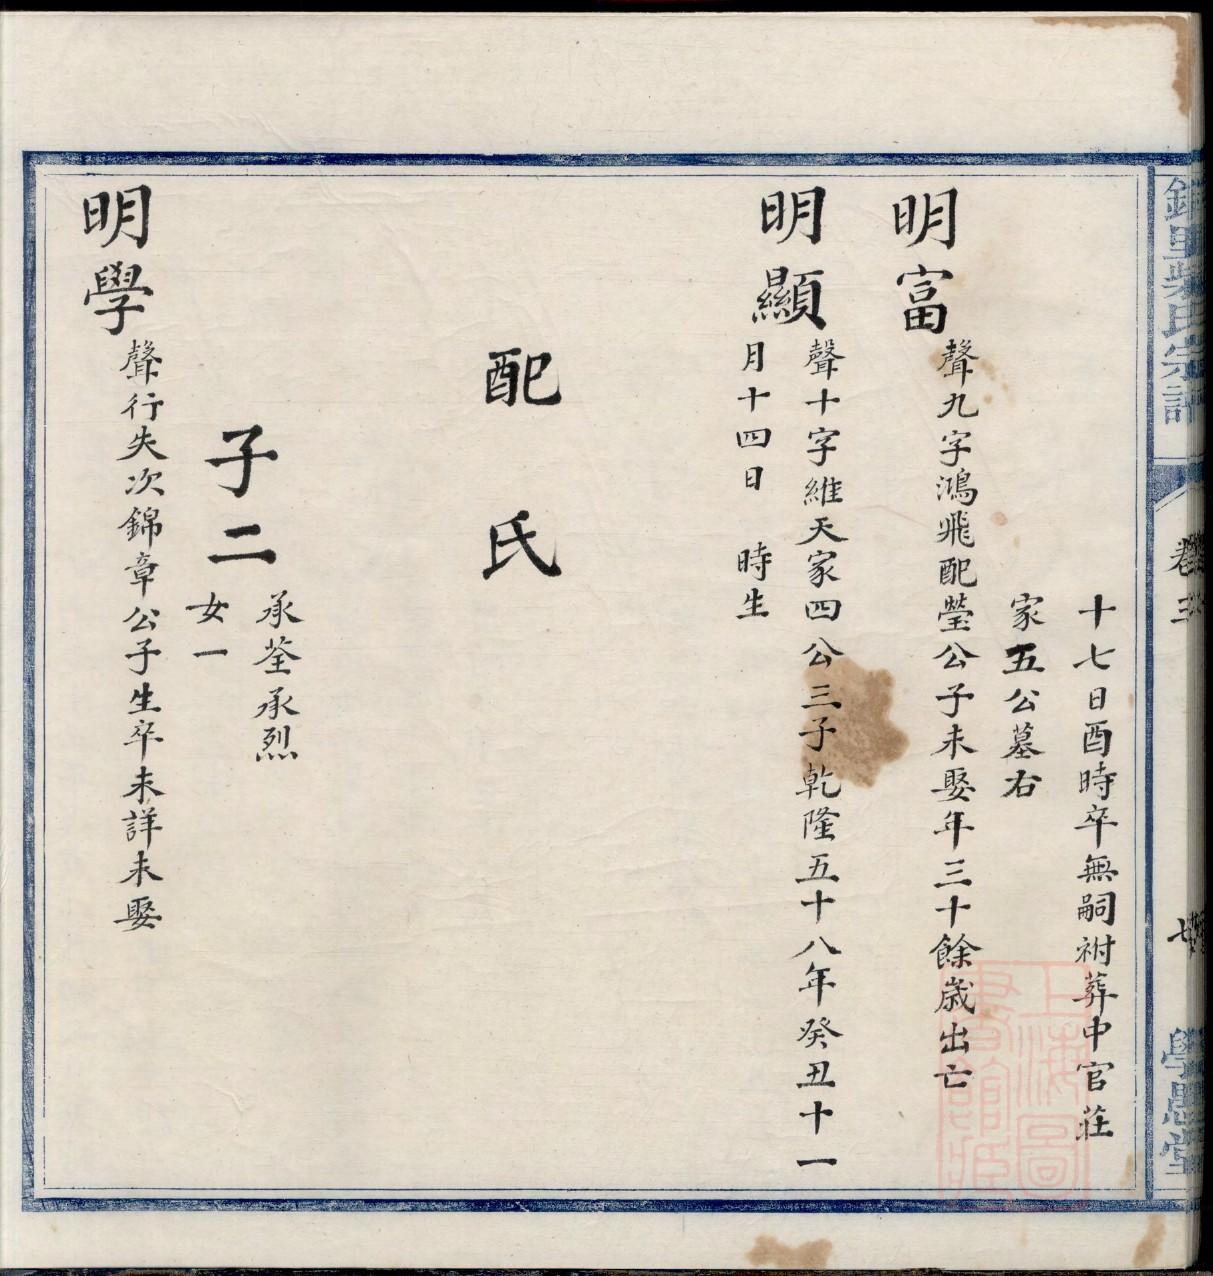 十七日酉時卒無嗣祔葬中官莊
家五公墓右
明富
聲九字鴻飛配瑩公子未娶年三十餘歲出亡
明顯
聲十字維天家四公三子乾隆五十八年癸丑十一
月十四日 時生
配 氏
子二
承荃承烈
女一
明學
聲行失次錦章公子生卒未詳未娶
柴氏宗譜
卷三
七
學愚堂
上海圖
書館藏